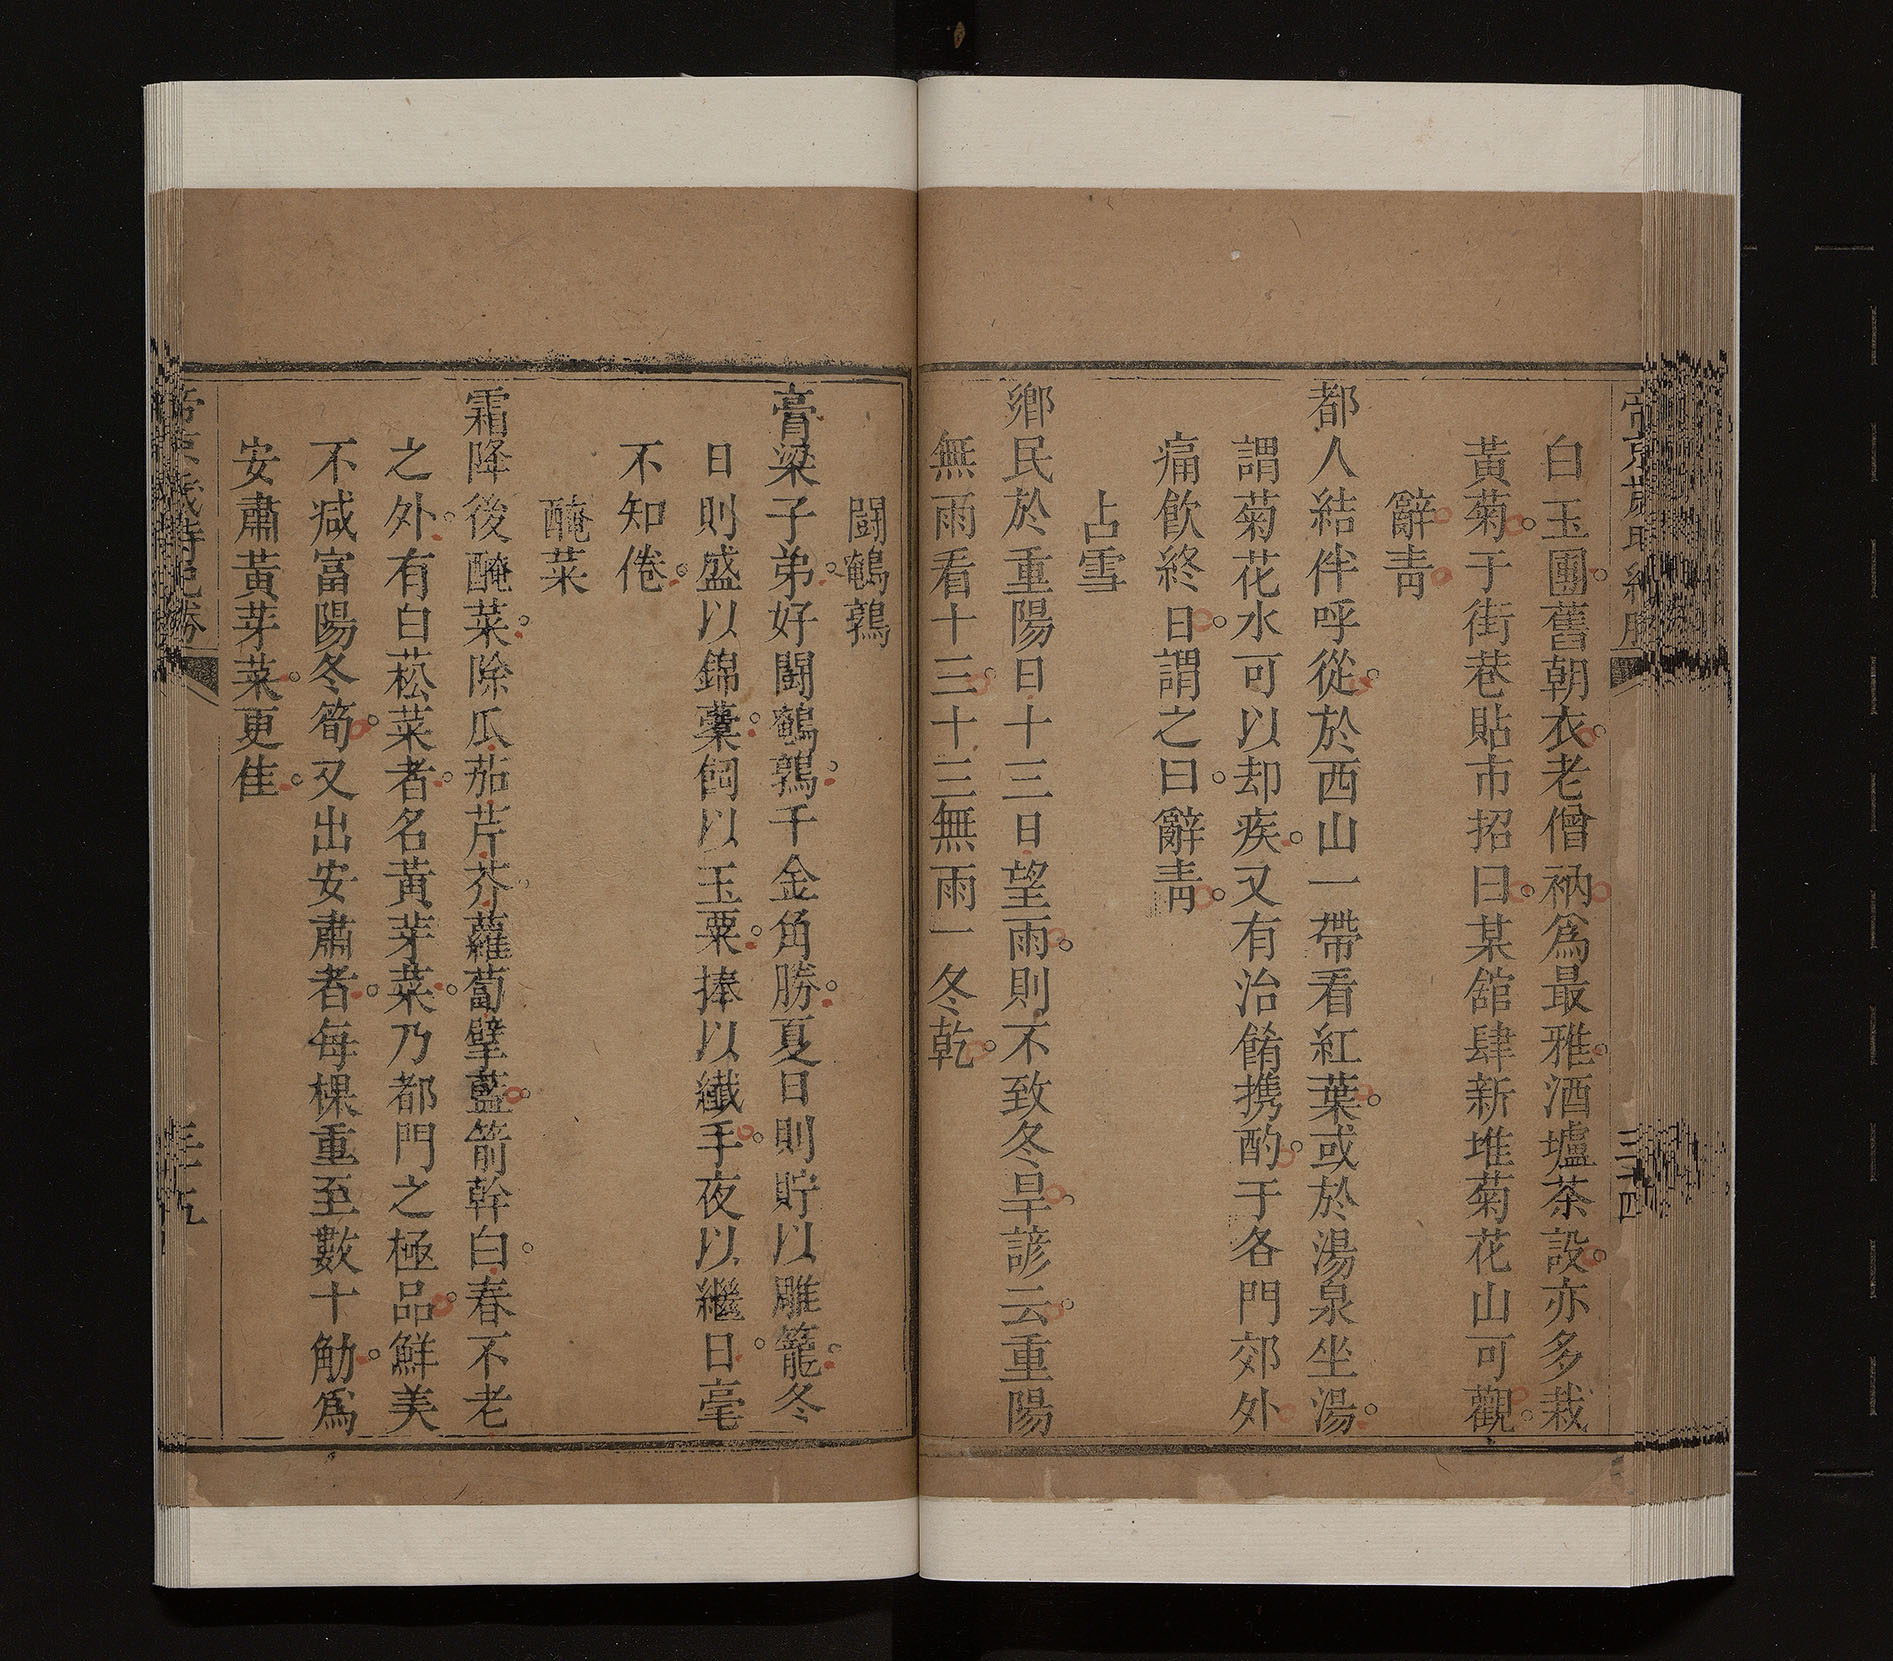 白玉團舊朝衣老僧衲爲最雅酒壚茶設亦多栽
黃菊于街巷貼市招曰某舘肆新堆菊花山可觀
辭青
都人結伴呼從於西山一帶看紅葉或於湯泉坐湯
謂菊花水可以却疾又有治餚携酌于各門郊外
痛飲終日謂之曰辭青
占雪
鄉民於重陽日十三日望雨則不致冬旱諺云重陽
無雨看十三十三無雨一冬乾
鬪鵪鶉
膏粱子弟好鬪鵪鶉千金角勝夏日則貯以雕籠冬
日則盛以錦囊飼以玉粟捧以纖手夜以繼日毫
不知倦
醃菜
霜降後醃菜除瓜茄芹芥蘿蔔擘藍箭幹白春不老
之外有白菘菜者名黃芽菜乃都門之極品鮮美
不减富陽冬筍又出安肅者每棵重至數十觔爲
安肅黃芽菜更佳
帝京歲時紀勝
三十五